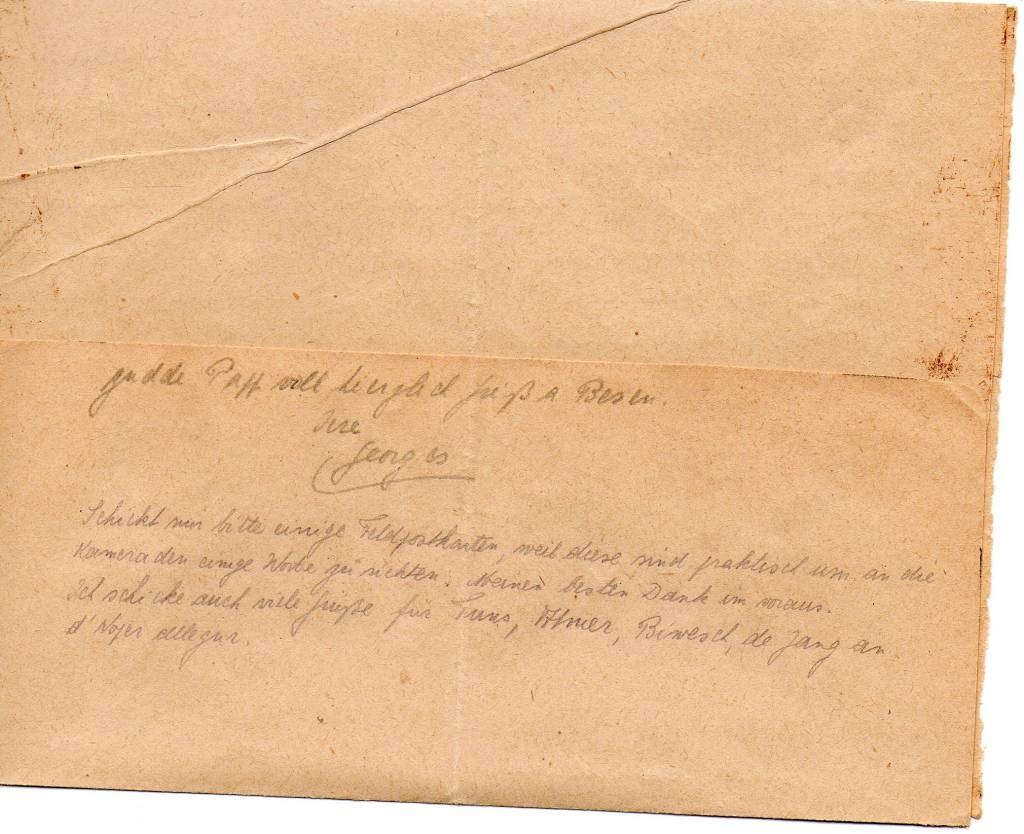 gudde Paff vill hierzlech Grüß a Besen.
Iere
Georges
Schickt mir bitte einige Feldpostkarten, weil diese sind praktisch um an die
Kameraden einige Worte zu richten. Meinen besten Dank im voraus.
Ich schicke auch viele Grüße für Funs, Biwesch, de Jang an
d'Nojer allegur.